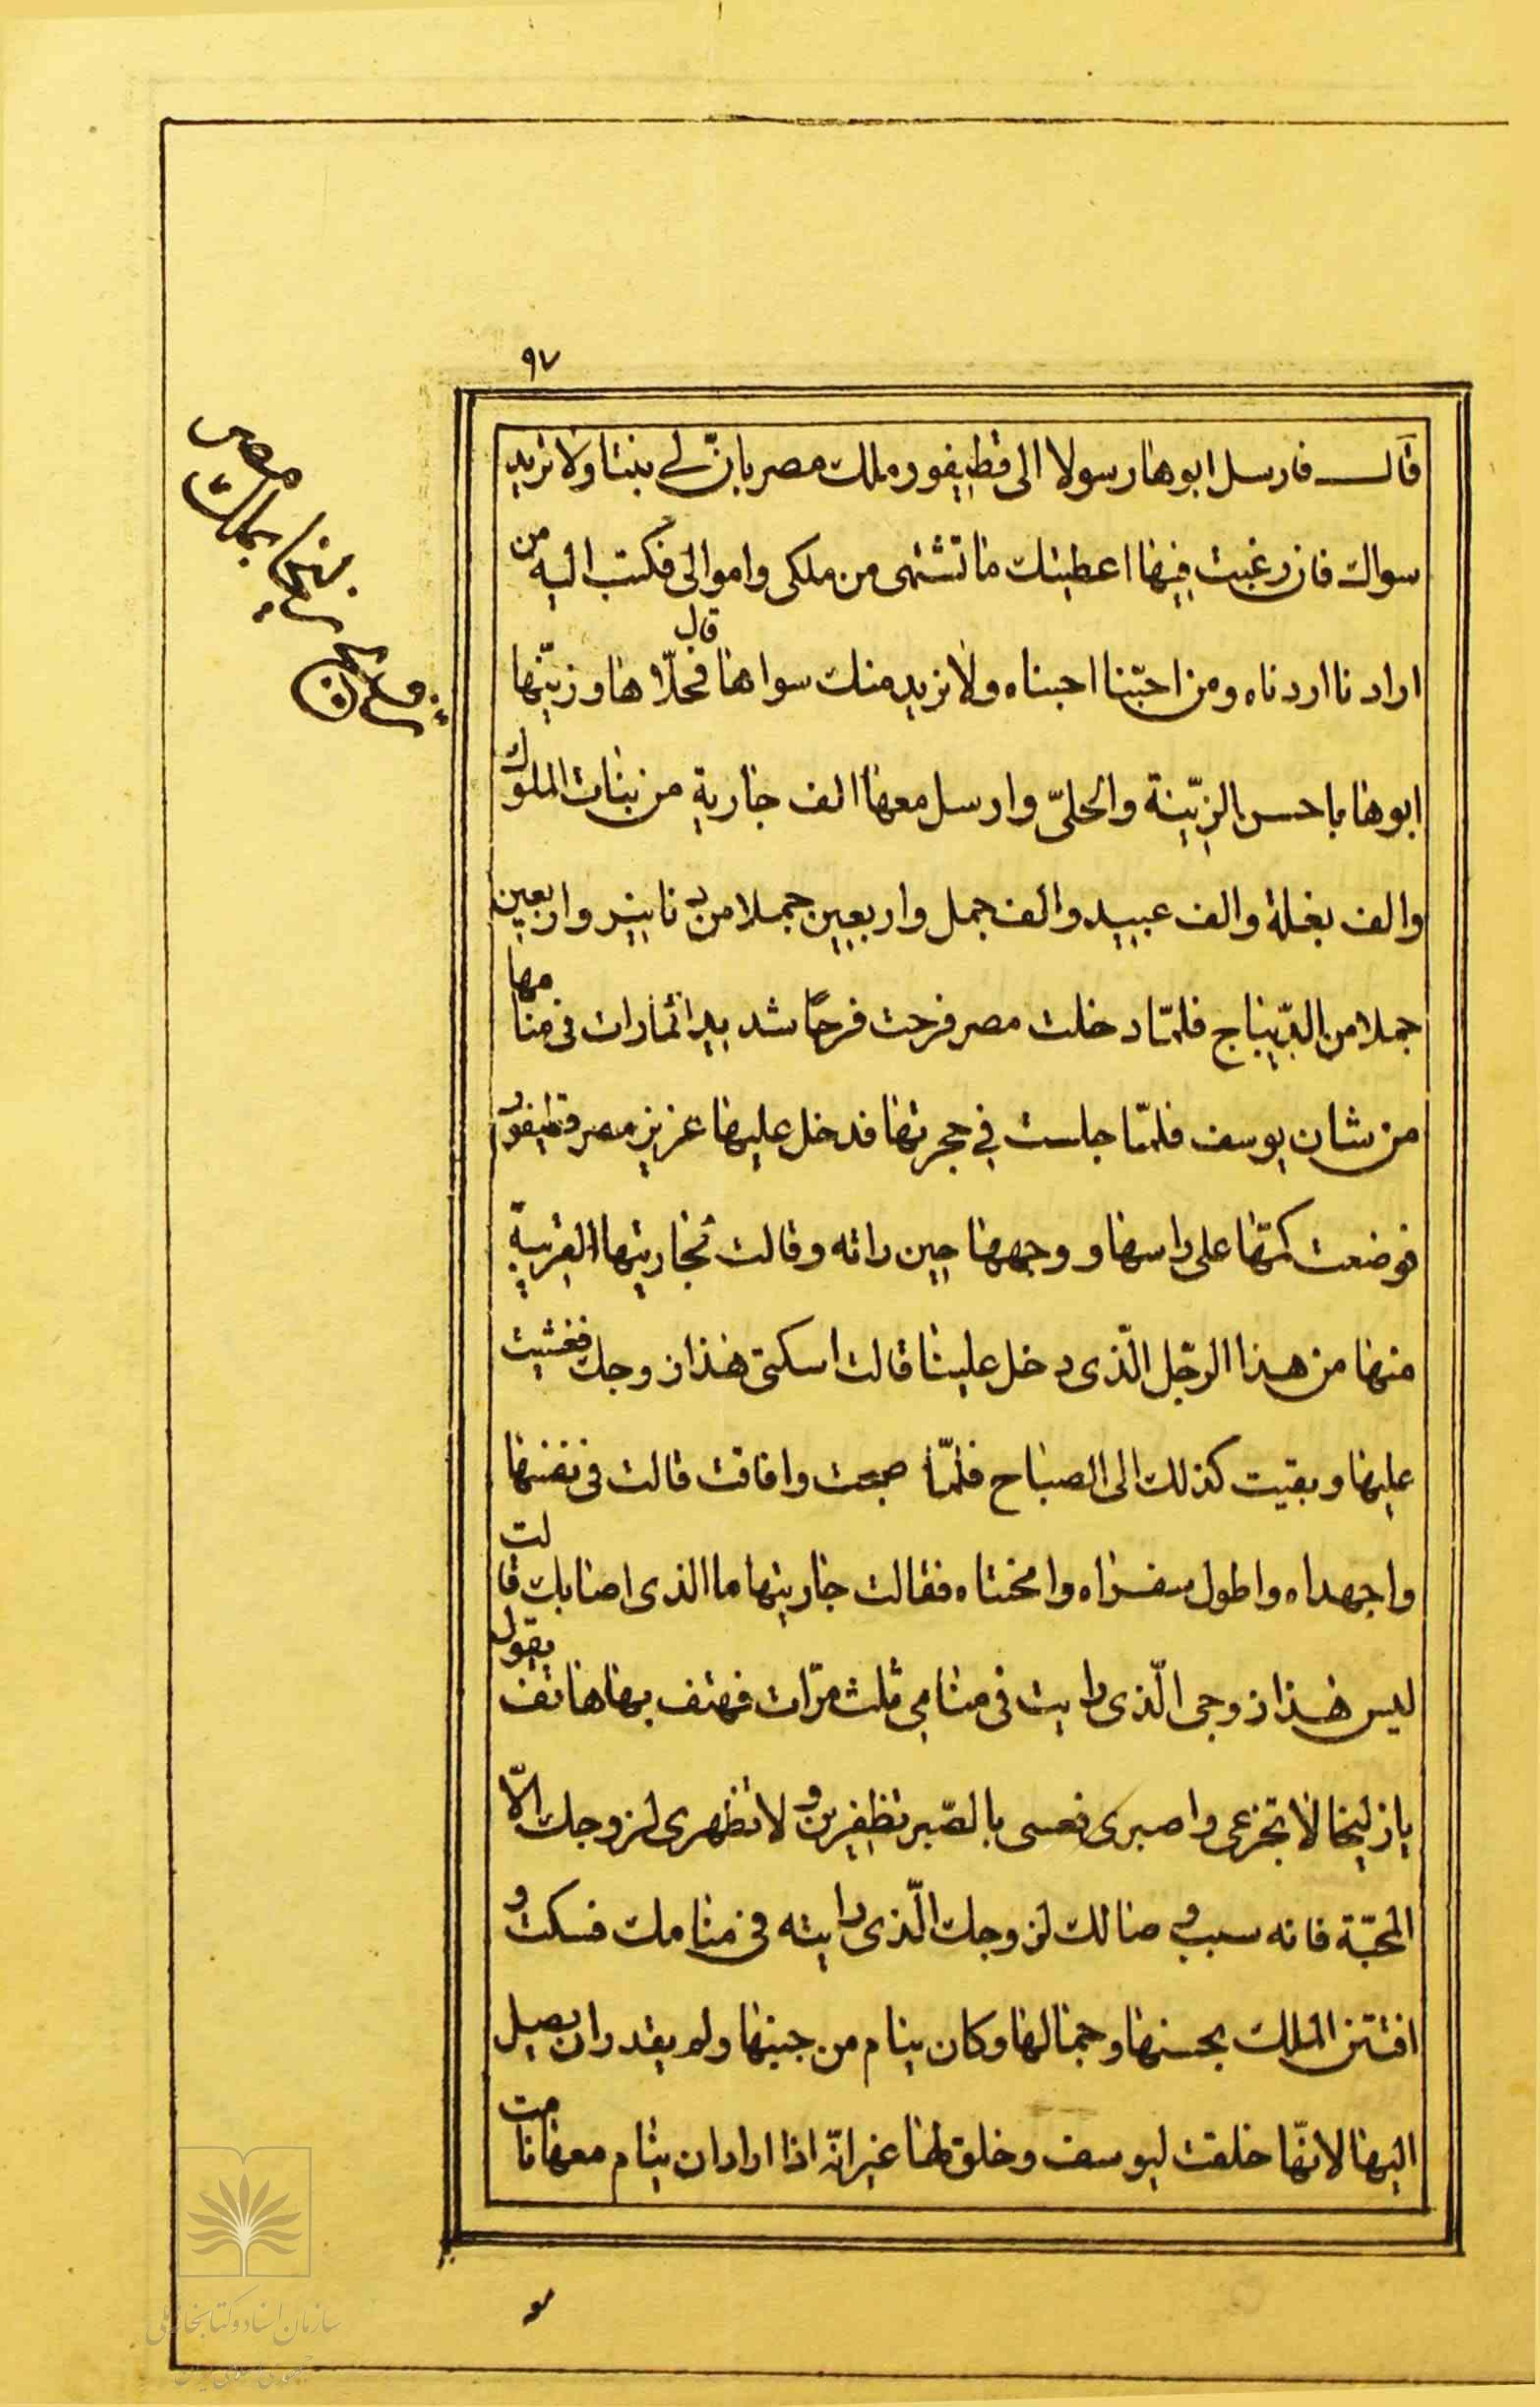 ٩٧
قال فارسل ابوها رسولا الى قطيفور ملك مصر بانّ لى بنتا ولا تريد
سواك فان رغبت فيها اعطيتك ما تشتهى من ملكى واموالى فكتب اليه من
ارادنا اردناه ومن احبّنا احبناه ولا نريد منك سواها قال فحلّاها وزيّنها
ابوها باحسن الزيّنة والحلىّ وارسل معها الف جارية من بنات الملوك
والف بغلة والف عبيد والف جمل واربعين جملا من دنانير واربعين
جملا من الدّيباج فلمّا دخلت مصر فرحت فرحًا شديدا لما رات فى منامها
من شان يوسف فلمّا جلست في حجرتها فدخل عليها عزيز مصر قطيفور
فوضعت كمّها على راسها و وجهها حين راته وقالت لجاريتها القريبة
منها من هذا الرجّل الّذى دخل علينا قالت اسكتى هذا زوجك فغشيت
عليها وبقيت كذلك الى الصباح فلمّا صبحت وافاقت قالت فى نفسها
واجهداه واطول سفراه وامحنتاه فقالت جاريتها ما الذى اصابك قالت
ليس هذا زوجى الّذى رايت فى منامي ثلث مرّات فهتف بها هاتف يقول
يا زليخا لا تجزعى واصبرى فعسى بالصّبر تظفرين و لا تظهرى لزوجك الّا
المحبّة فانه سبب وصالك لزوجك الّذى رايته فى منامك فسكت و
افتتن الملك بحسنها وجمالها وكان ينام من جينها ولم يقدر ان يصل
اليها لانّها خلقت ليوسف وخلق لها غير انّه اذا اراد ان ينام معها نامت
زليخا بملك مصر